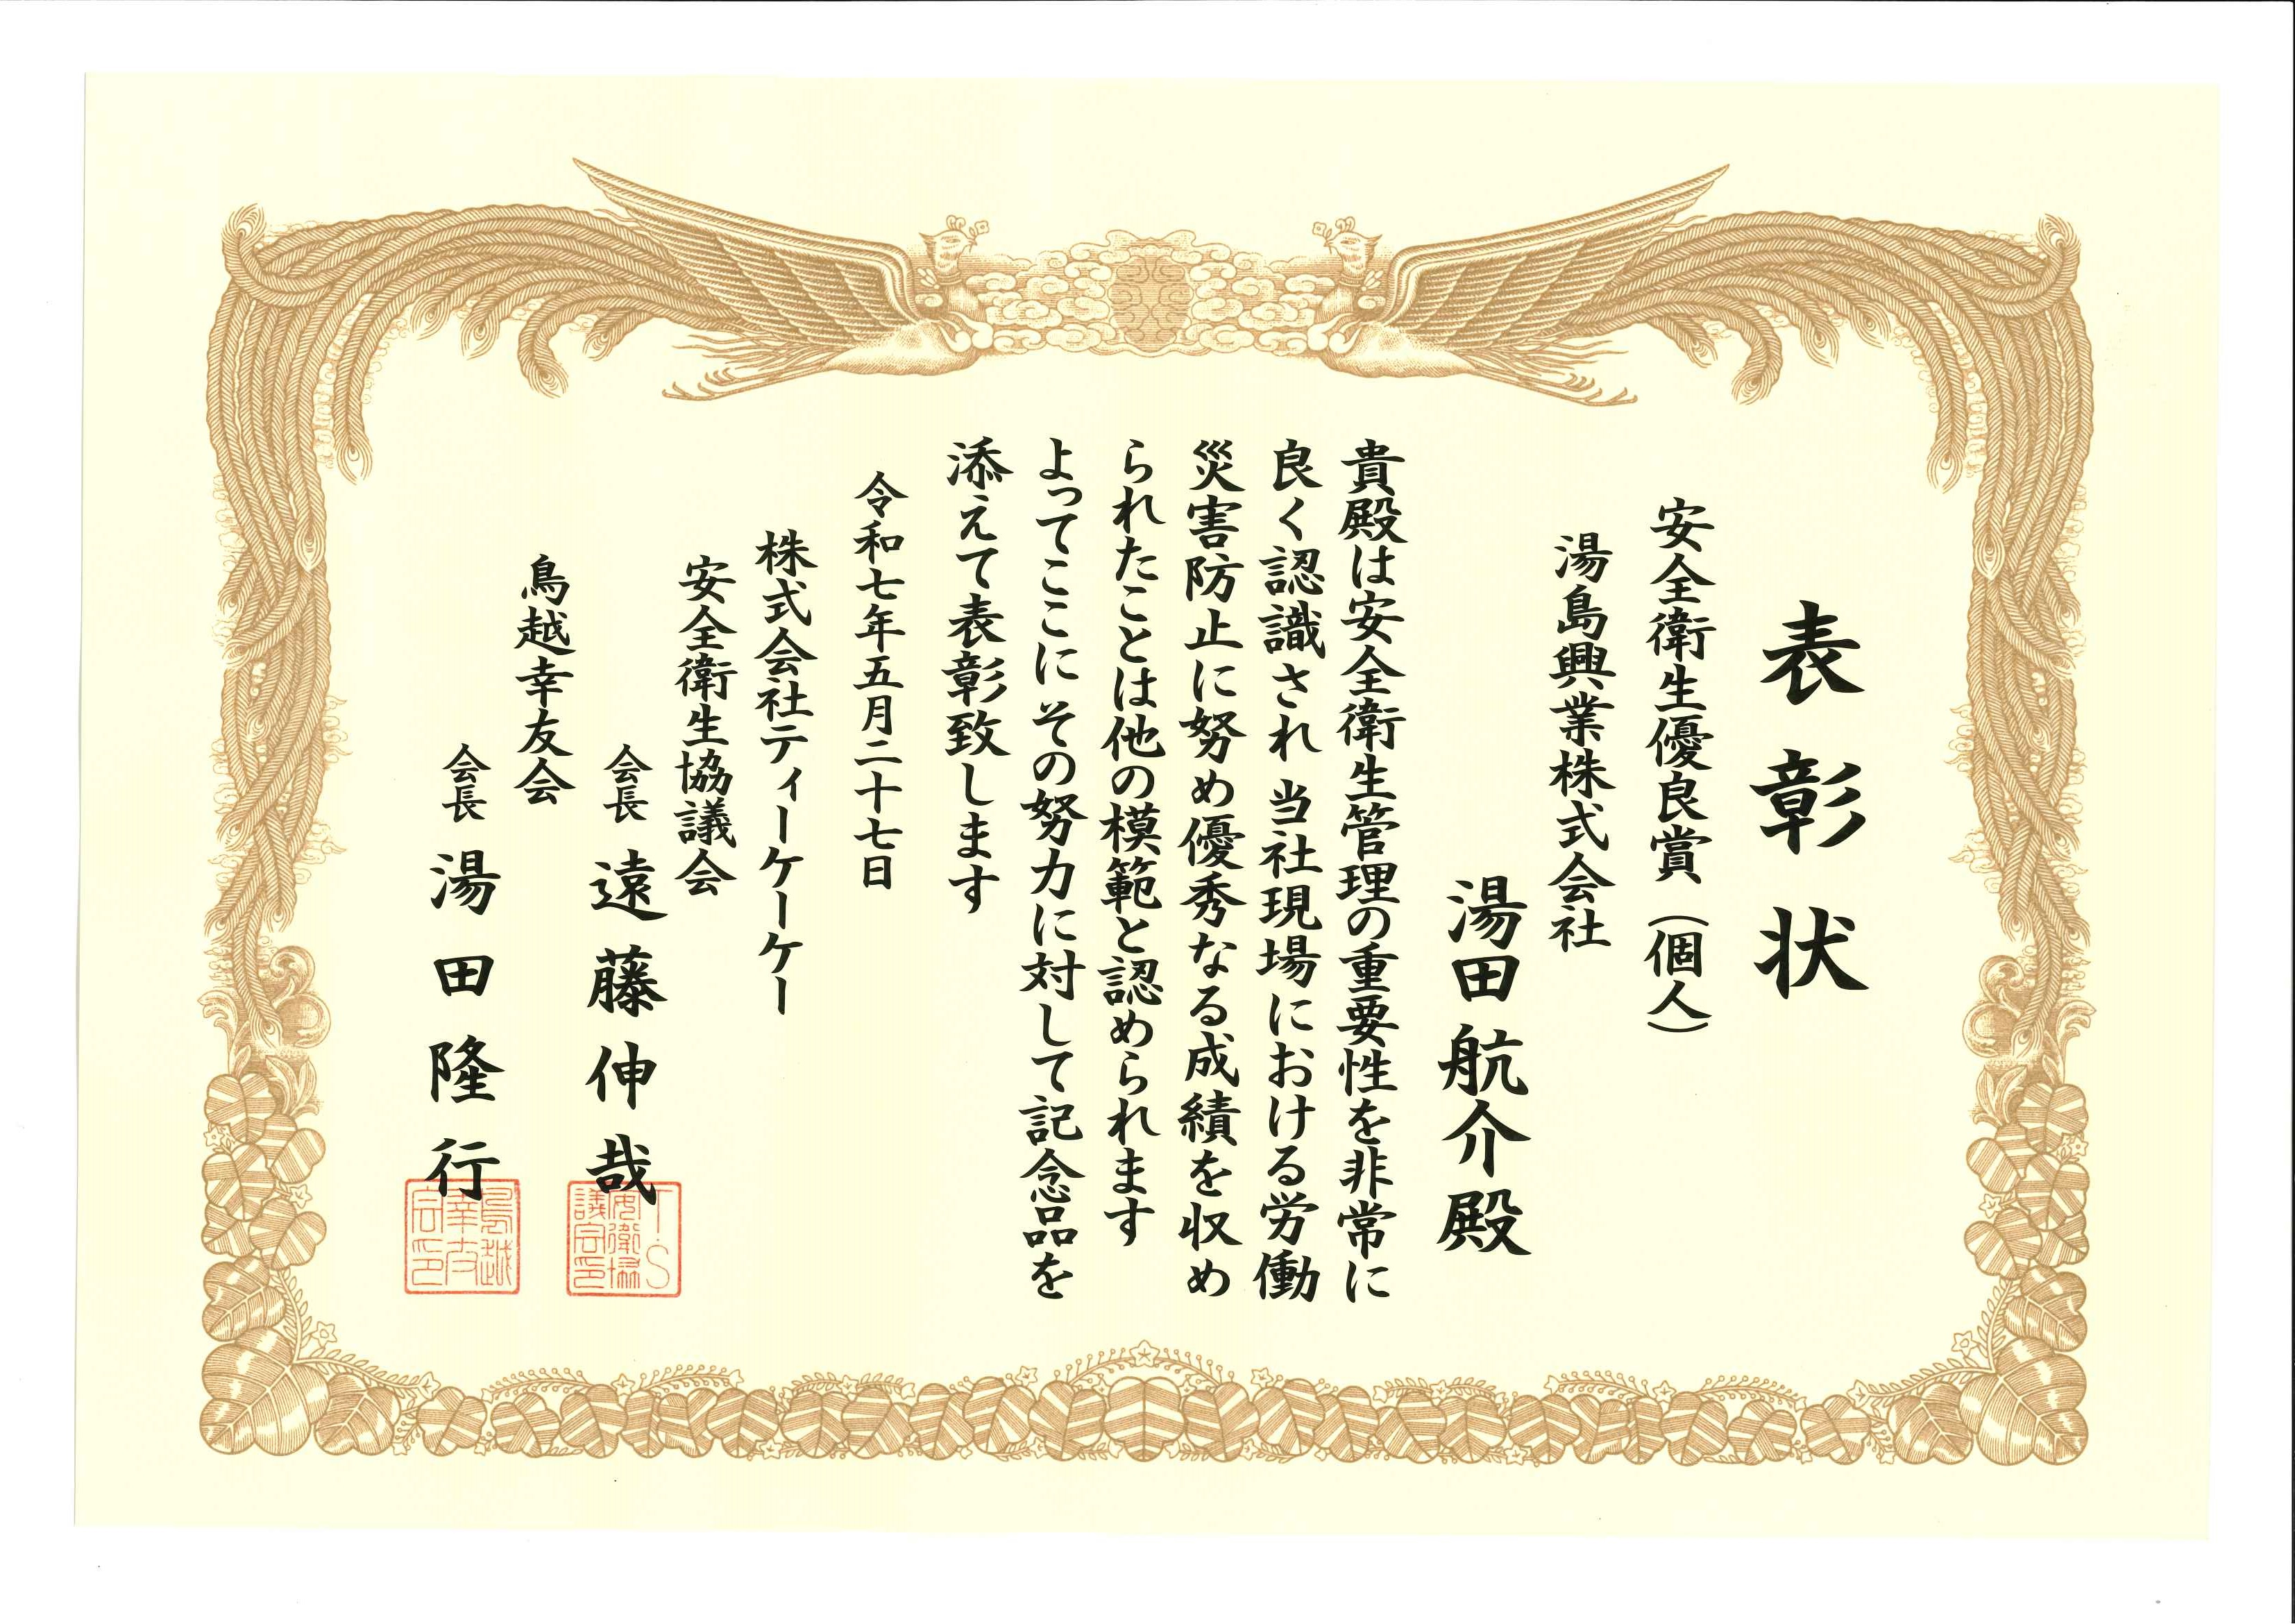 表彰状
安全衛生優良賞（個人）
湯島興業株式会社
湯田航介殿
貴殿は安全衛生管理の重要性を非常に
良く認識され 当社現場における労働
災害防止に努め優秀なる成績を収め
られたことは他の模範と認められます
よってここに その努力に対して記念品を
添えて表彰致します
令和七年五月二十七日
株式会社ティーケーケー
安全衛生協議会
会長 遠藤伸哉
鳥越幸友会
会長 湯田隆行
鳥越
幸友
会印